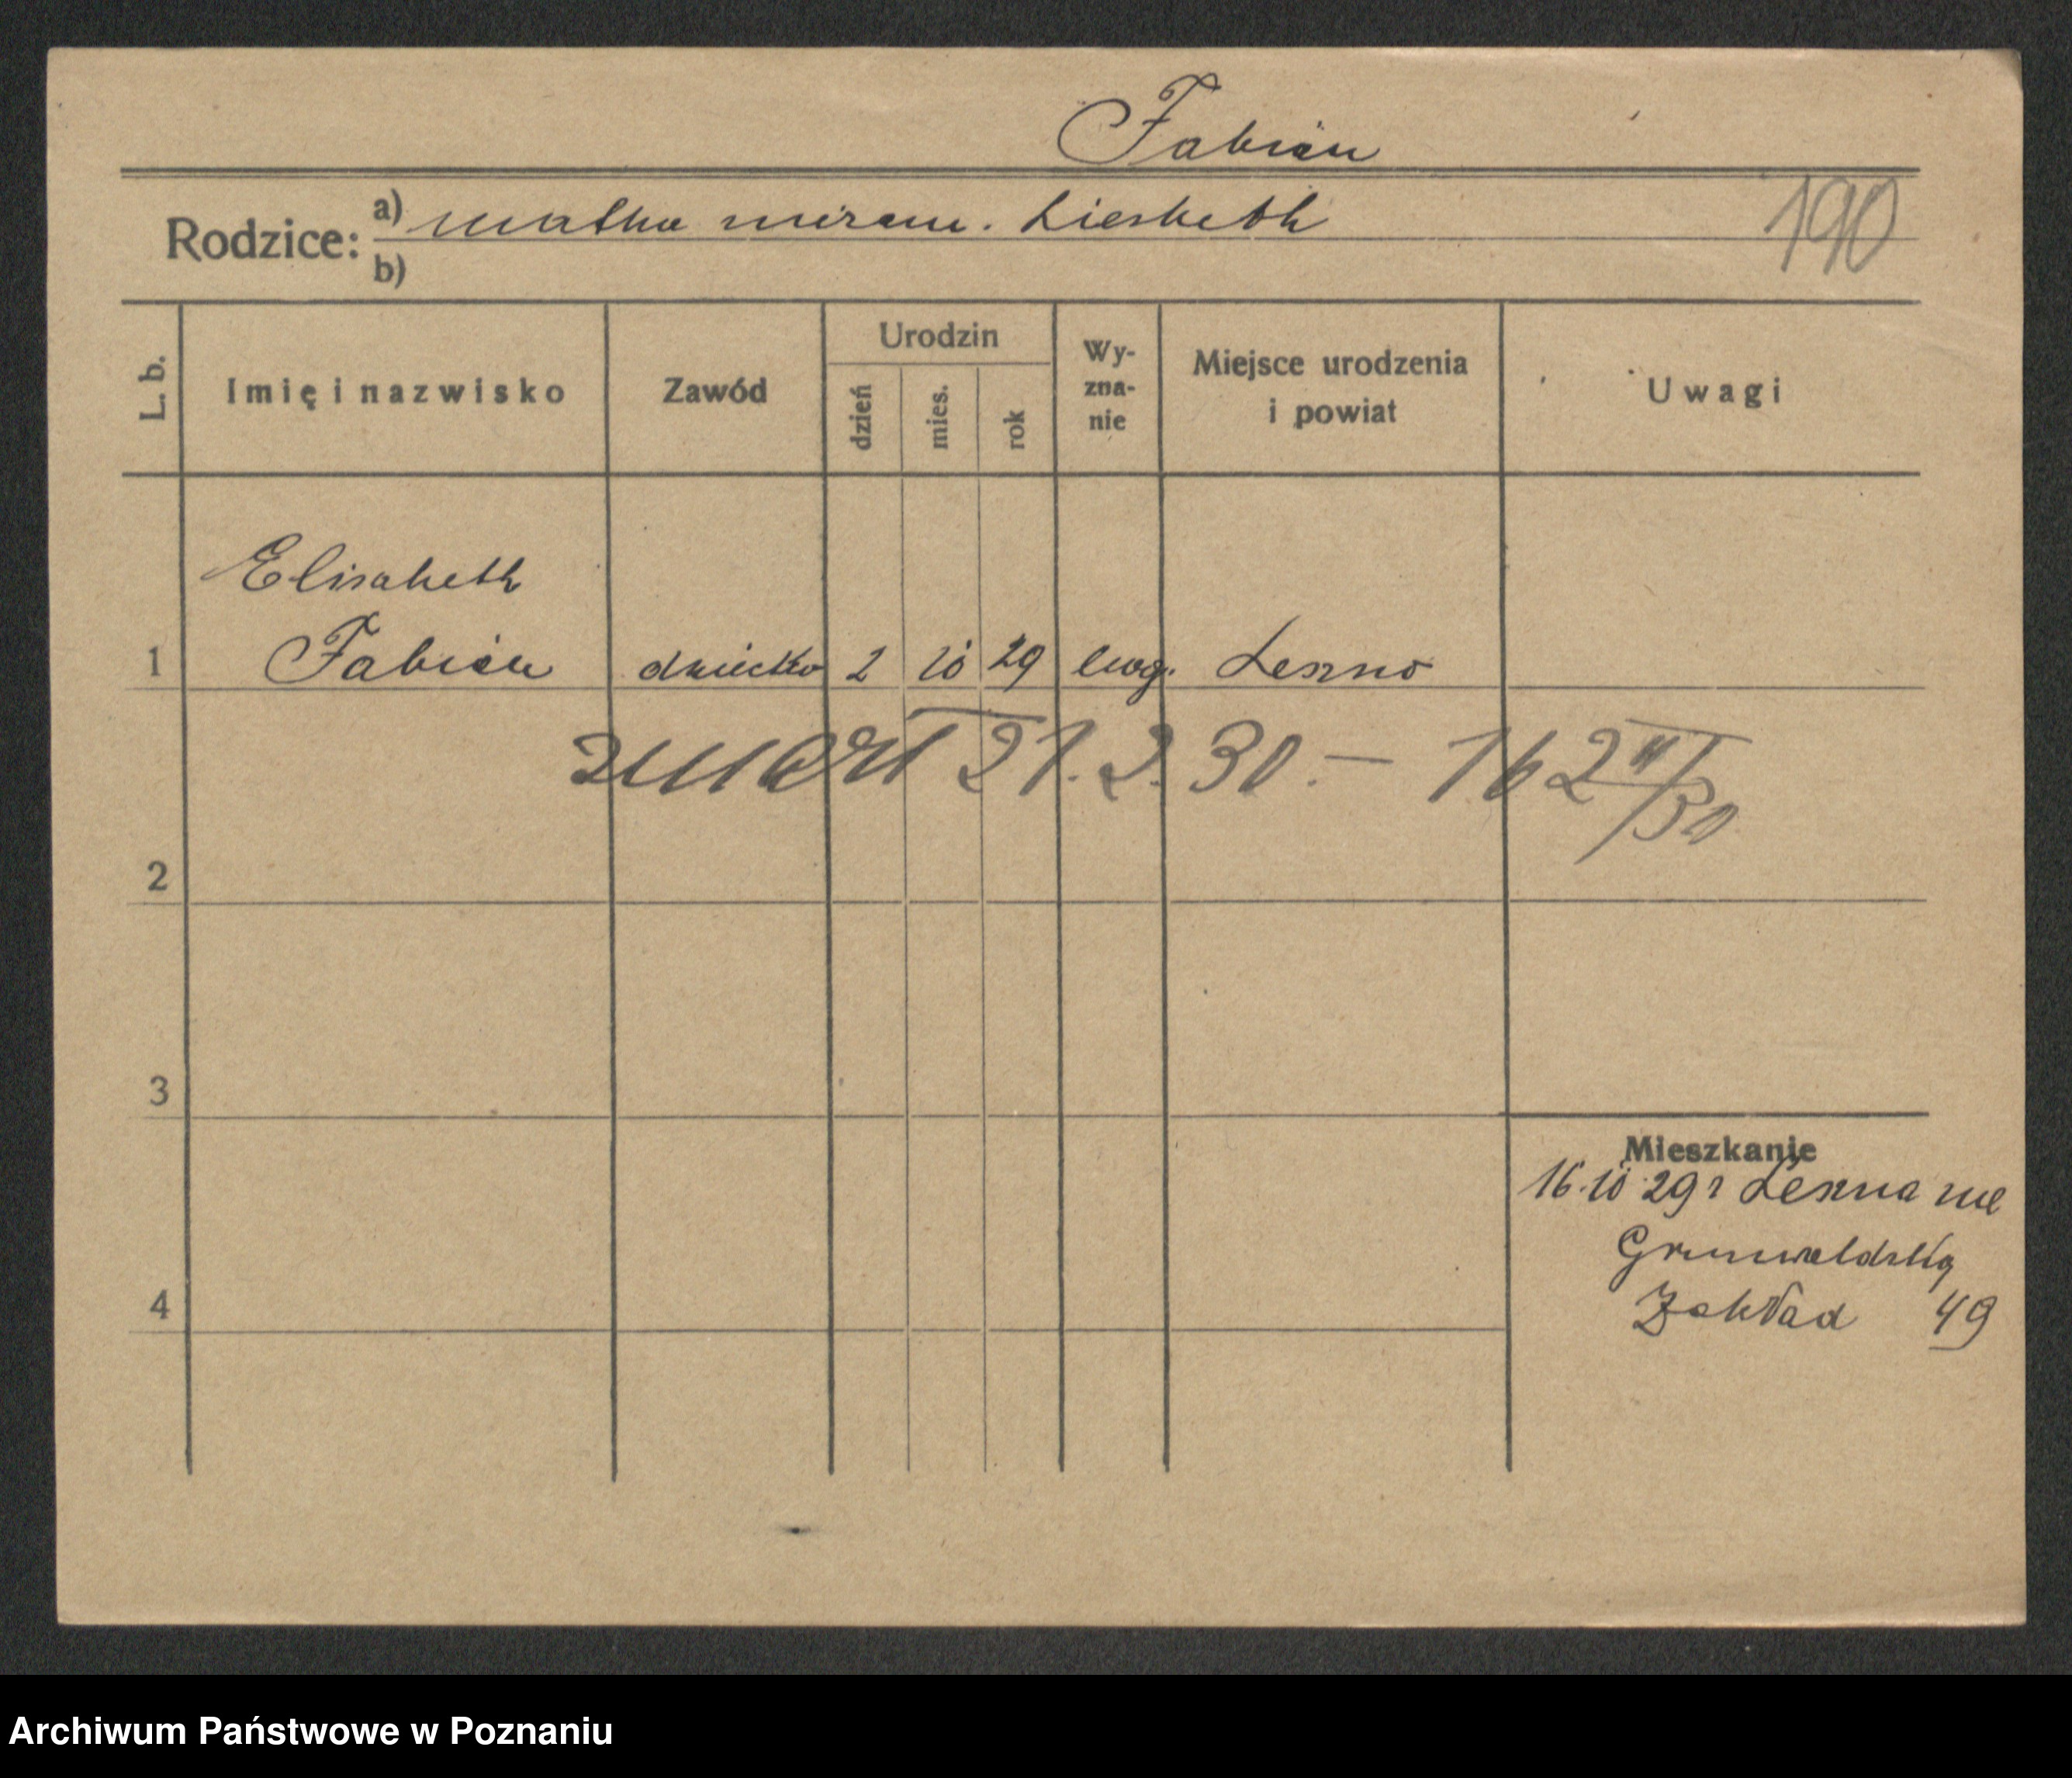 Fabian
Rodzice: a) matka niezam. Liesbeth
190
b)
L. b.
Imię i nazwisko
Zawód
Urodzin
dzień
mies.
rok
Wy-
zna-
nie
Miejsce urodzenia
i powiat
Uwagi
Elisabeth
1 Fabian dziecko 2 10 29 ewg. Leszno
zmarł 21.2.30. — 162 II/30
2
3
4
Mieszkanie
16.10.29 r Leszna
Grunwaldzka
Zakład 49
Archiwum Państwowe w Poznaniu